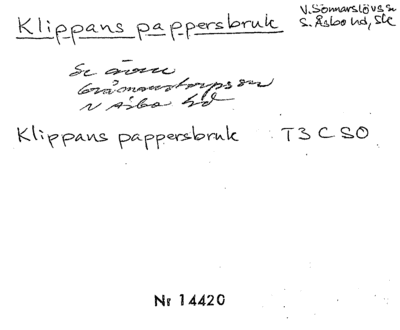 Klippans pappersbruk
V. Sönnarslövs sn
S. Åsbo hd, Sk
Se även
Gråmanstorps sn
N Åsbo hd
Klippans pappersbruk T3 C SO
Nr 14420